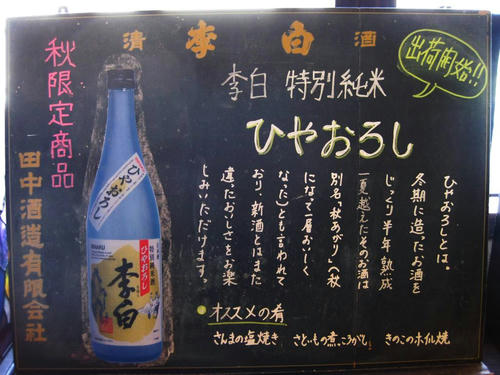 清 李 白 酒
出荷開始!!
李白 特別純米
ひやおろし
秋限定商品
田中酒造有限会社
ひやおろしとは。
冬期に造ったお酒を
じっくり半年熟成
一夏越えたそのお酒は
別名、秋あがり(秋
になって一層おいしく
なった)とも言われて
おり、新酒とはまた
違ったおいしさをお楽
しみいただけます。
オススメの肴
さんまの塩焼き さといもの煮っころがし きのこのホイル焼
ひやおろし
ひやおろし
李白